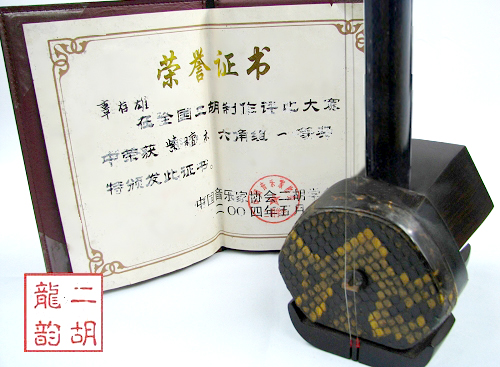 荣誉证书
在全国二胡制作评比大赛
中荣获 紫檀木 六角组 一 等奖
特颁发此证书。
中国音乐家协会二胡学
二00四年五月
二胡
龍韵